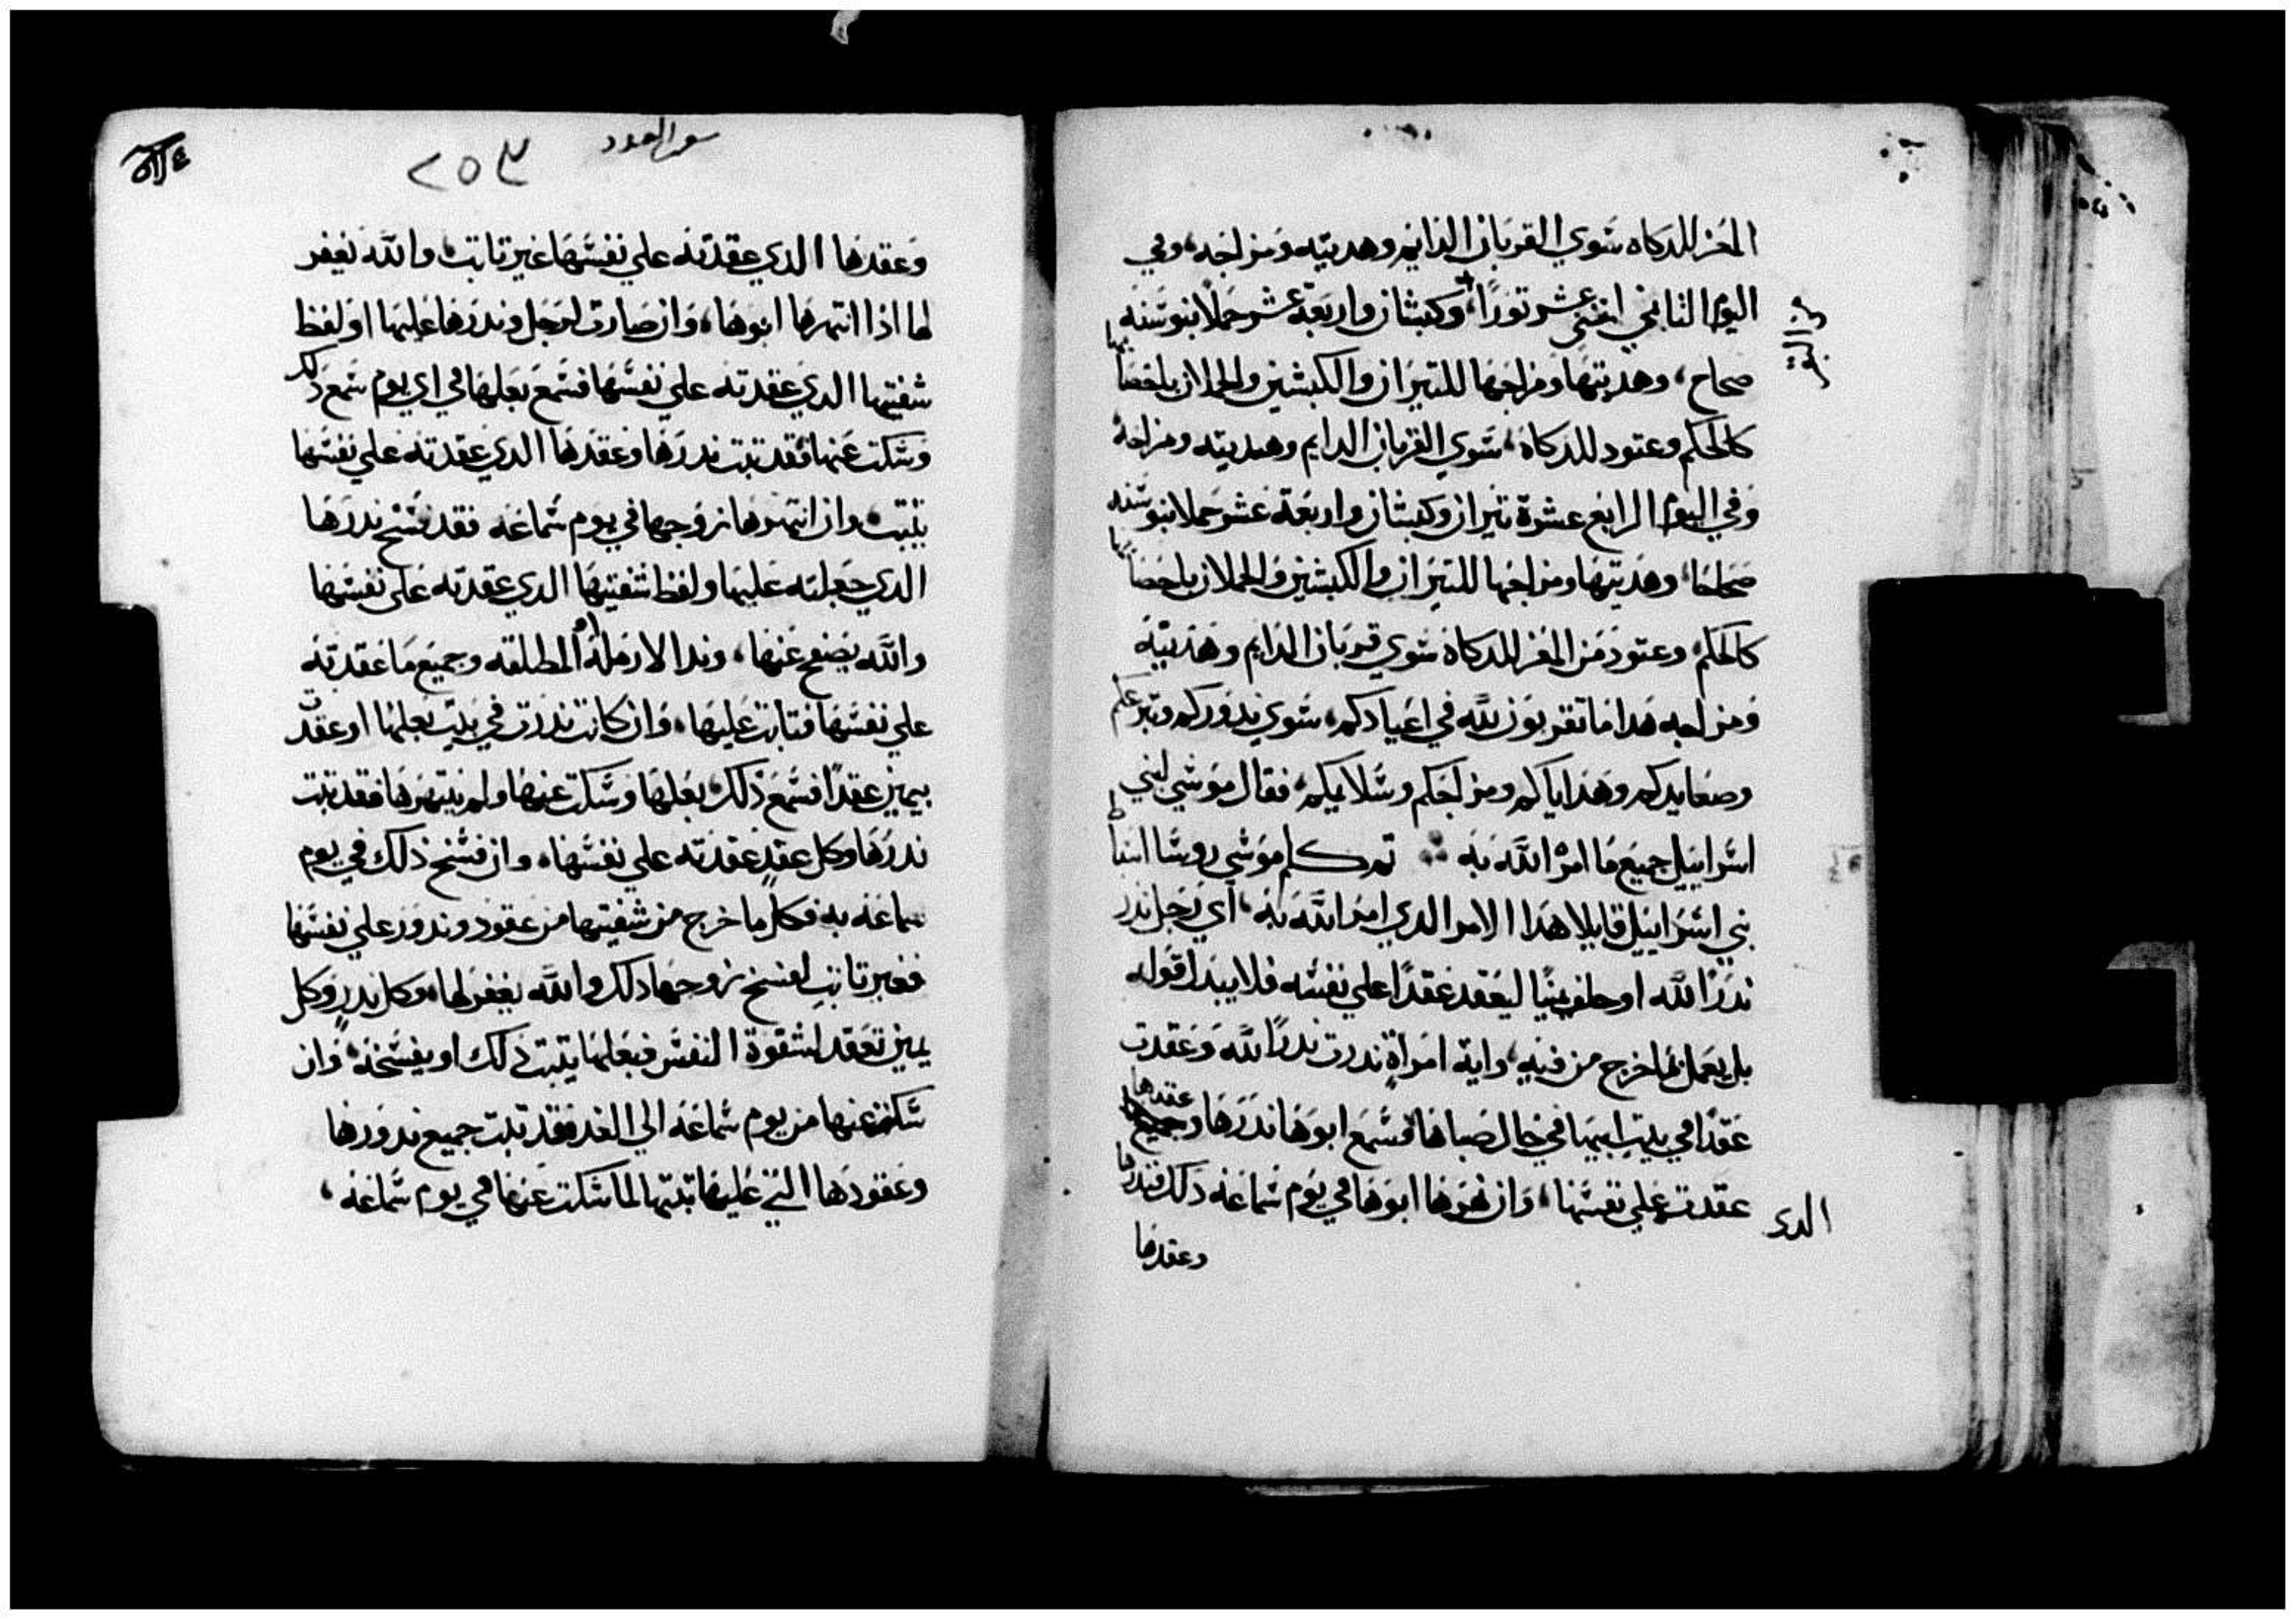 المعز للدكاه سوي القربان الدايم وهديته ومزاجه، وفي
اليوم الثاني اثني عشر ثورًا، وكبشان واربعة عشر حملا بنو سنه
صحاح، وهديتها ومزاجها للتيران والكبشين والحملان باحصايها
كالحكم وعتود للدكاة، سوي القربان الدايم وهديته ومزاجه
وفي اليوم الرابع عشرة تيران وكبشان واربعة عشر حملا بنو سنه
صحاحا، وهديتها ومزاجها للتيران والكبشين والحملان باحصايها
كالحكم، وعتود من المعز للدكاة سوي قربان الدايم وهديته
ومزاجه هدا ما تقربون لله في اعيادكم، سوي ندوركم وتبرعكم
وصعايدكم وهداياكم ومزاجكم وسلايمكم، فقال موسي لبني
اسراييل جميع ما امره الله به ثم كلم موسي روسا اسباط
بني اسراييل قايلا هدا الامر الدي امر الله به، اي رجل ندر
ندرًا لله او حلف يمينًا ليعقد عقدًا علي نفسه فلا يبدا قوله
بل يعمل بما خرج من فيه، واية امراةٍ ندرت ندرًا لله وعقدت
عقدًا في بيت ابيها في حال صباها فسمع ابوها ندرها وعقدها
الدى عقدت علي نفسها، وان نهرها ابوها في يوم سماعه دلك فندرها
وعقدها
سفر العدد
٢٥٣
وعقدها الدي عقدته علي نفسها غير تابت، والله يغفر
لها ادا انتهرها ابوها، وان صارت لرجل وندرها عليها او لفظ
شفتيها الدي عقدته علي نفسها فسمع بعلها في اي يوم سمع دلك
وسكت عنها فقد تبت ندرها وعقدها الدي عقدته علي نفسها
يثبت، وان انتهرها زوجها في يوم سماعه فقد فسخ ندرها
الدي جعلته عليها ولفظ شفتيها الدي عقدته علي نفسها
والله يصفح عنها، وندر الارملة او المطلقه وجميع ما عقدته
علي نفسها فتابت عليها، وان كانت ندرت في بيت بعلها او عقدت
بيمين عقدًا فسمع ذلك بعلها وسكت عنها ولم ينتهرها فقد تبت
ندرها وكل عقدٍ عقدته علي نفسها، وان فسخ ذلك في يوم
سماعه به فكل ما خرج من شفتيها من عقود وندور علي نفسها
فغير تابت لفسخ زوجها دلك والله يغفر لها، وكل ندرٍ وكل
يمين تعقد لشقوة النفس فبعلها يتبت دلك او يفسخه، وان
سكت عنها من يوم سماعه الي الغد فقد تبت جميع ندورها
وعقودها التي عليها تبتها لما سكت عنها في يوم سماعه،